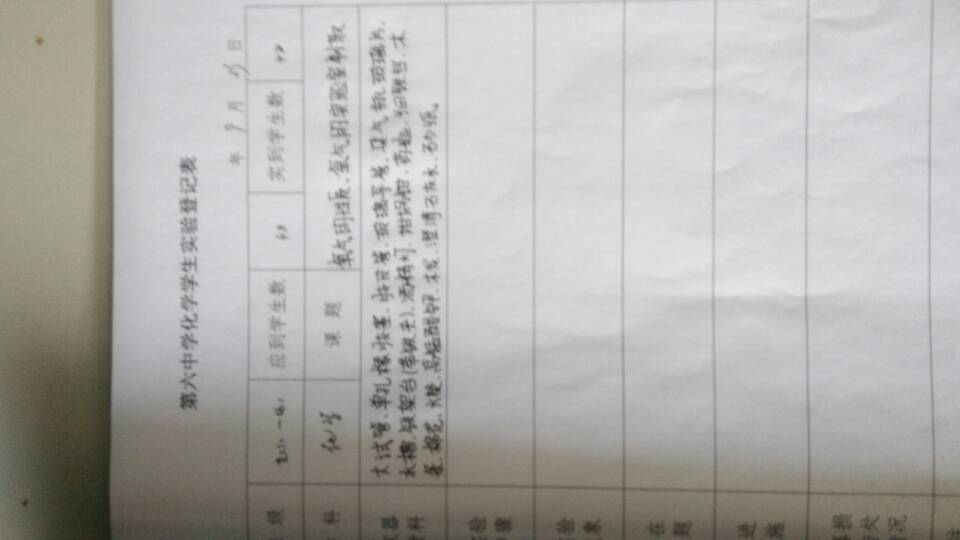 第六中学化学学生实验登记表
年 9 月 25 日
级 应到学生数 实到学生数
科 化学 课题 氧气的性质、氧气的实验室制取
器 大试管、单孔橡胶塞、胶皮管、玻璃导管、集气瓶、玻璃片、
料 水槽、铁架台(带铁夹)、酒精灯、坩埚钳、药匙、细铁丝、木
炭、棉花、火柴、高锰酸钾、木炭、澄清石灰水、砂纸。
验
验
象
在
题
进
施
损
处
况